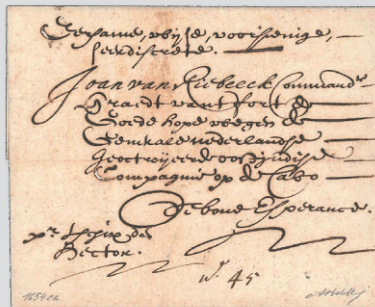 Eersame, wijse, voorsienige,
seer discrete.
Joan van Riebeeck Command.r
Raedt van't fort de
Goede hope wegen de
Generale nederlandse
Geoctroijeerde oostindise
Compagnie op de Cabo
de bone Esperance.
p.r 't schip den
Hector.
N.º 45